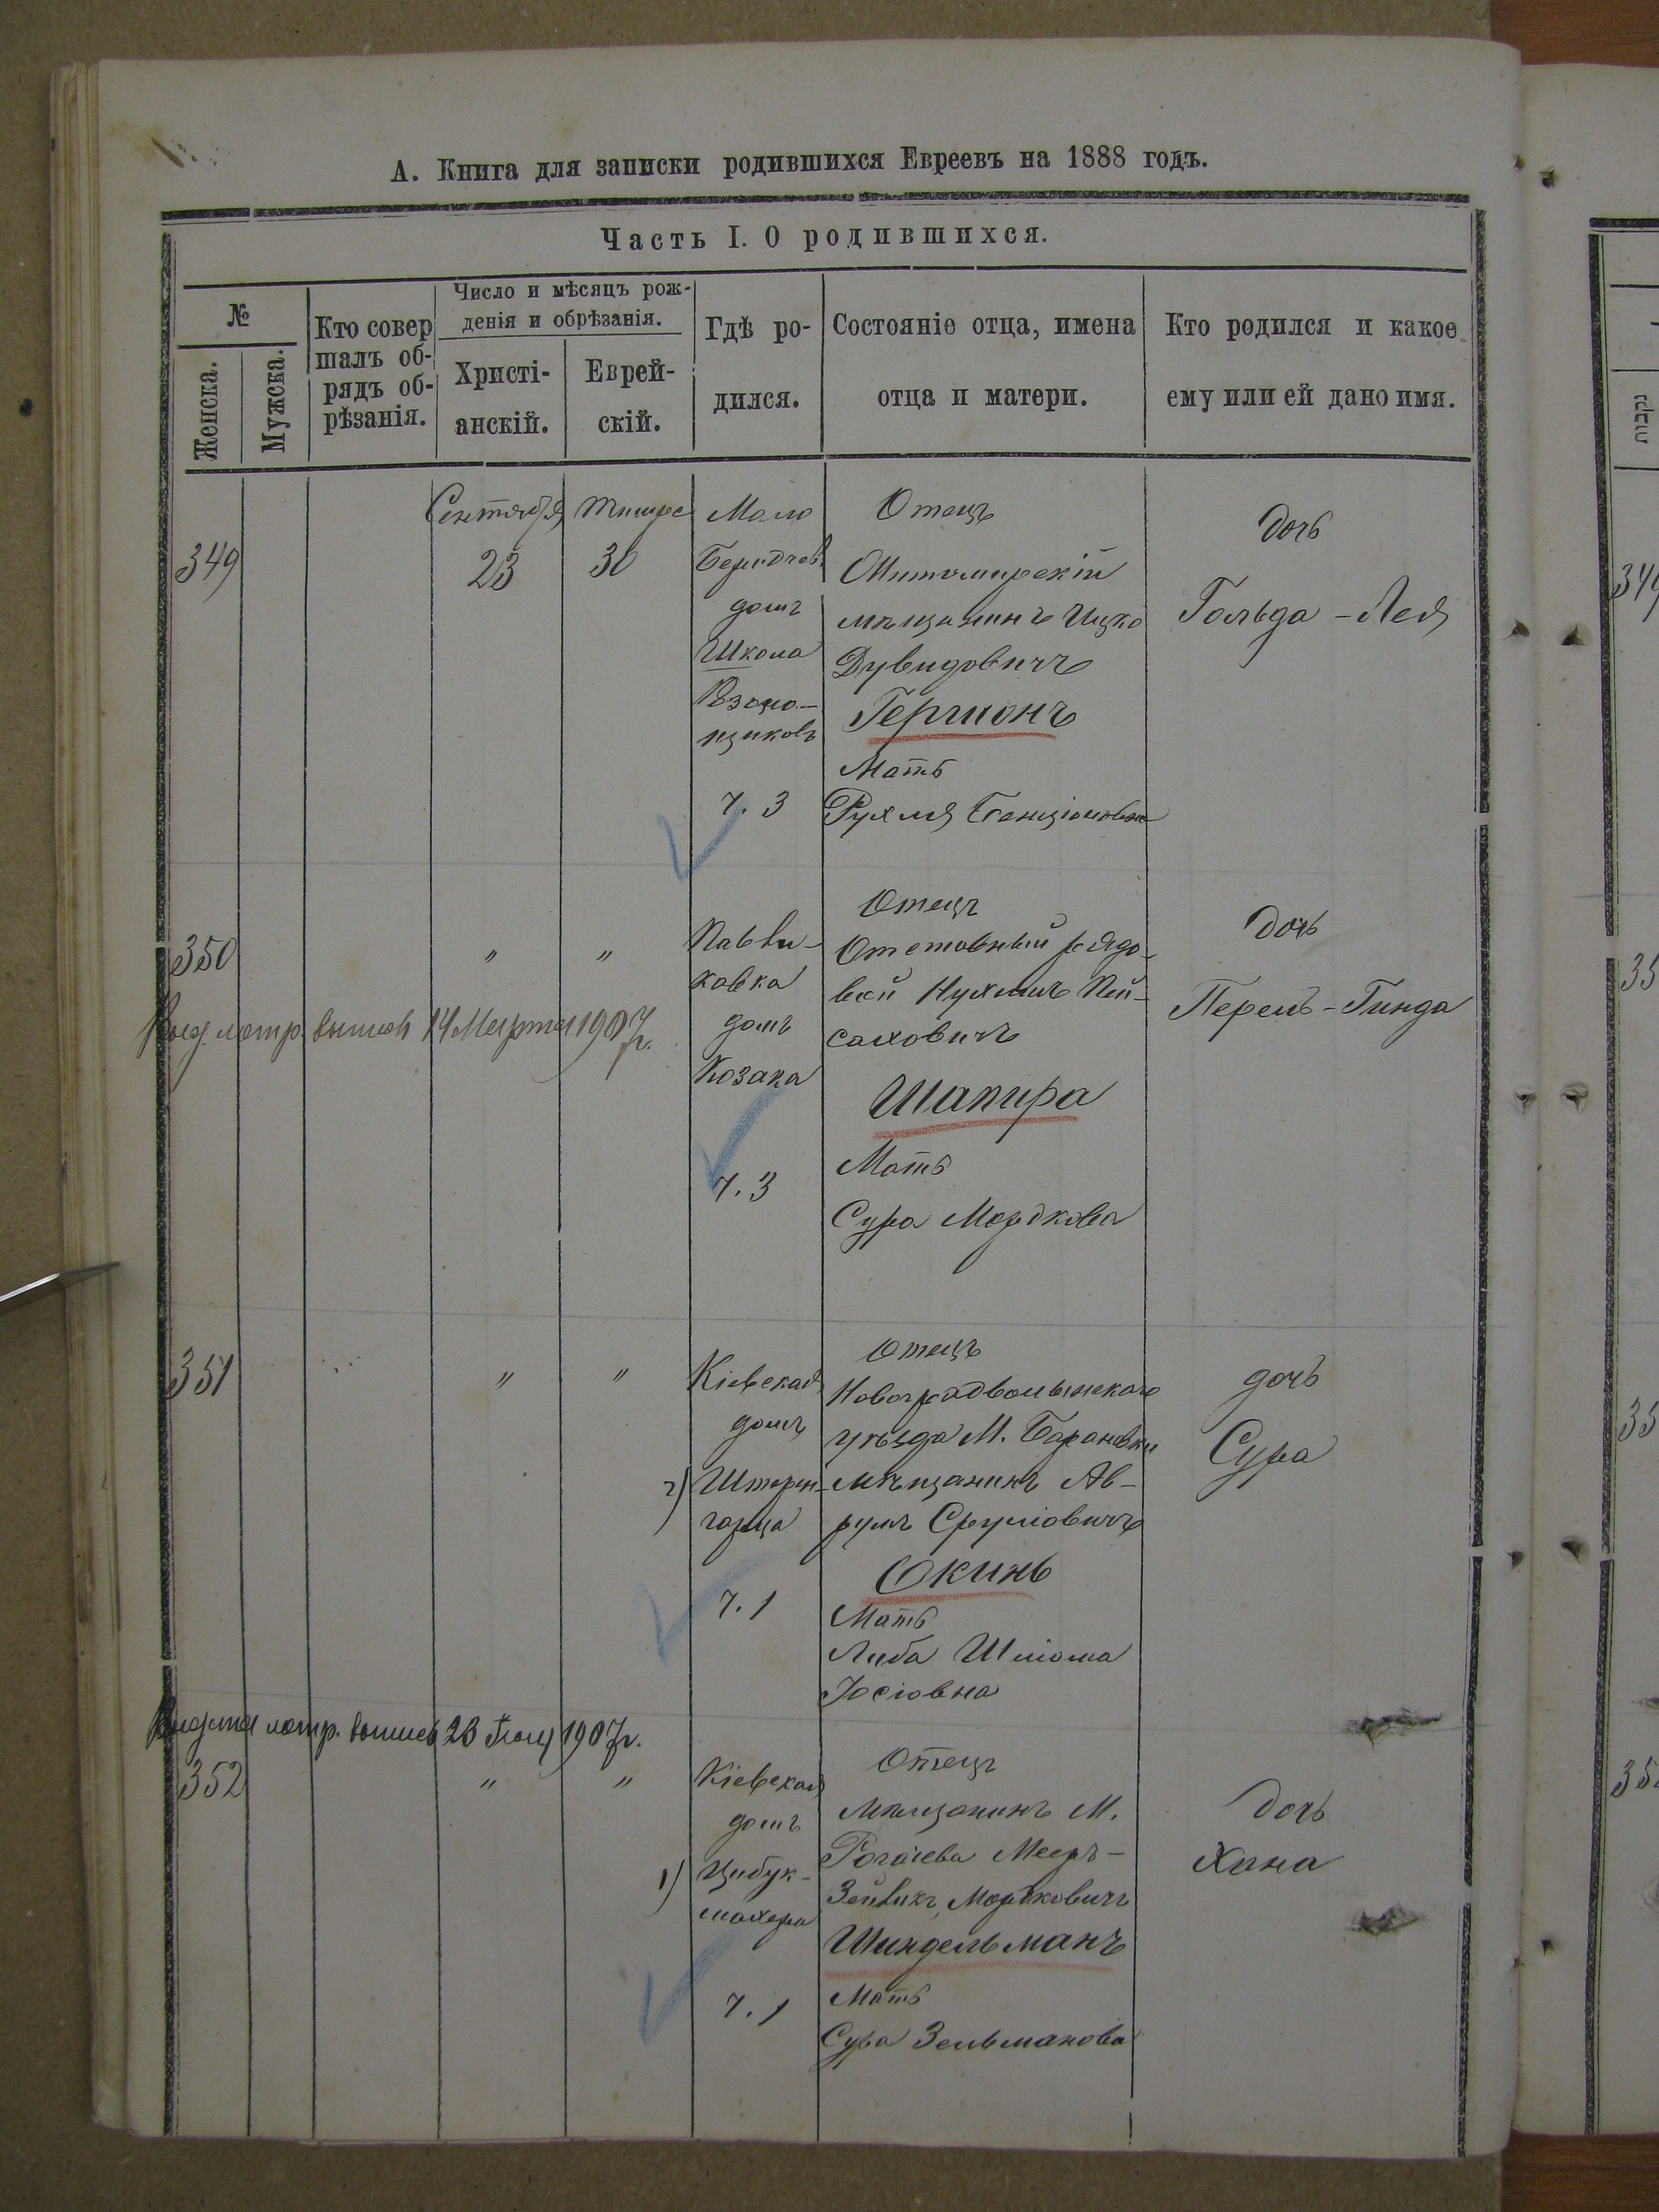 А. Книга для записки родившихся Евреевъ на 1888 годъ.
Часть I. О родившихся.
№
Женска.
Мужска.
Кто совер
шалъ об-
рядъ об-
рѣзанія.
Число и мѣсяцъ рож-
денія и обрѣзанія.
Христі-
анскій.
Еврей-
скій.
Гдѣ ро-
дился.
Состояніе отца, имена
отца и матери.
Кто родился и какое
ему или ей дано имя.
349
Сентября
23
Тишре
30
Мало
Бердичев
домъ
Школа
ч. 3
Отецъ
Житомирскій
мѣщанинъ Ицко
Дувидовичъ
Гершонъ
Мать
Рухля Бенціоновна
дочь
Гольда-Лея
350
"
"
домъ
Козака
ч. 3
Отецъ
Отставный рядо-
вой Нухимъ Пей-
саховичъ
Шапира
Мать
Сура Мордкова
дочь
Перель-Гинда
метр. выпись 14 Марта 1907 г.
351
"
"
Кіевская
домъ
2) Штерн-
гарца
ч. 1
Отецъ
Новоградволынскаго
уѣзда М. Барановки
мѣщанинъ Ав-
румъ Срулiовичъ
Окинь
Мать
Либа Шліома
Іосіовна
дочь
Сура
Выдана метр. выпись 23 1907 г.
352
"
"
Кіевская
домъ
1) Цибук-
махера
ч. 1
Отецъ
мѣщанинъ М.
Рогачева Мееръ-
Зейвикъ Мордковичъ
Шиндельманъ
Мать
Сура Зельманова
дочь
Хана
349
35
35
35